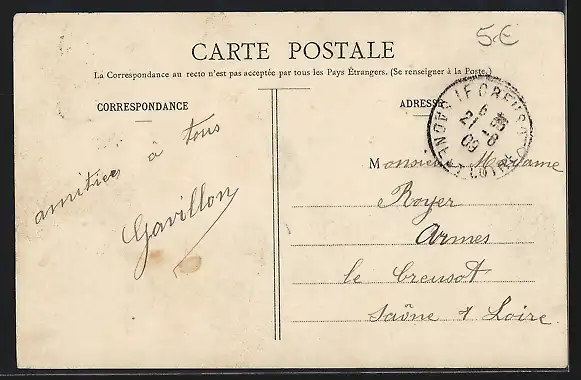 5€
CARTE POSTALE
La Correspondance au recto n'est pas acceptée par tous les Pays Étrangers. (Se renseigner à la Poste.)
CORRESPONDANCE
amitiés à tous
Gavillon
ADRESSE
LE CREUSOT
6
21 -8
09
SAONE-ET-LOIRE
Monsieur Madame
Royer
Armes
le Creusot
Saône & Loire